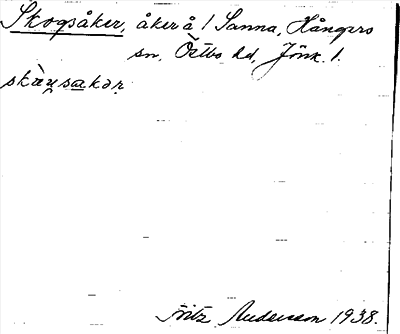 Skogsåker, åker å 1 Sanna, Hångers
sn, Östbo hd, Jönk. l.
skæ̀ɥsakər
Fritz Anderson 1938.